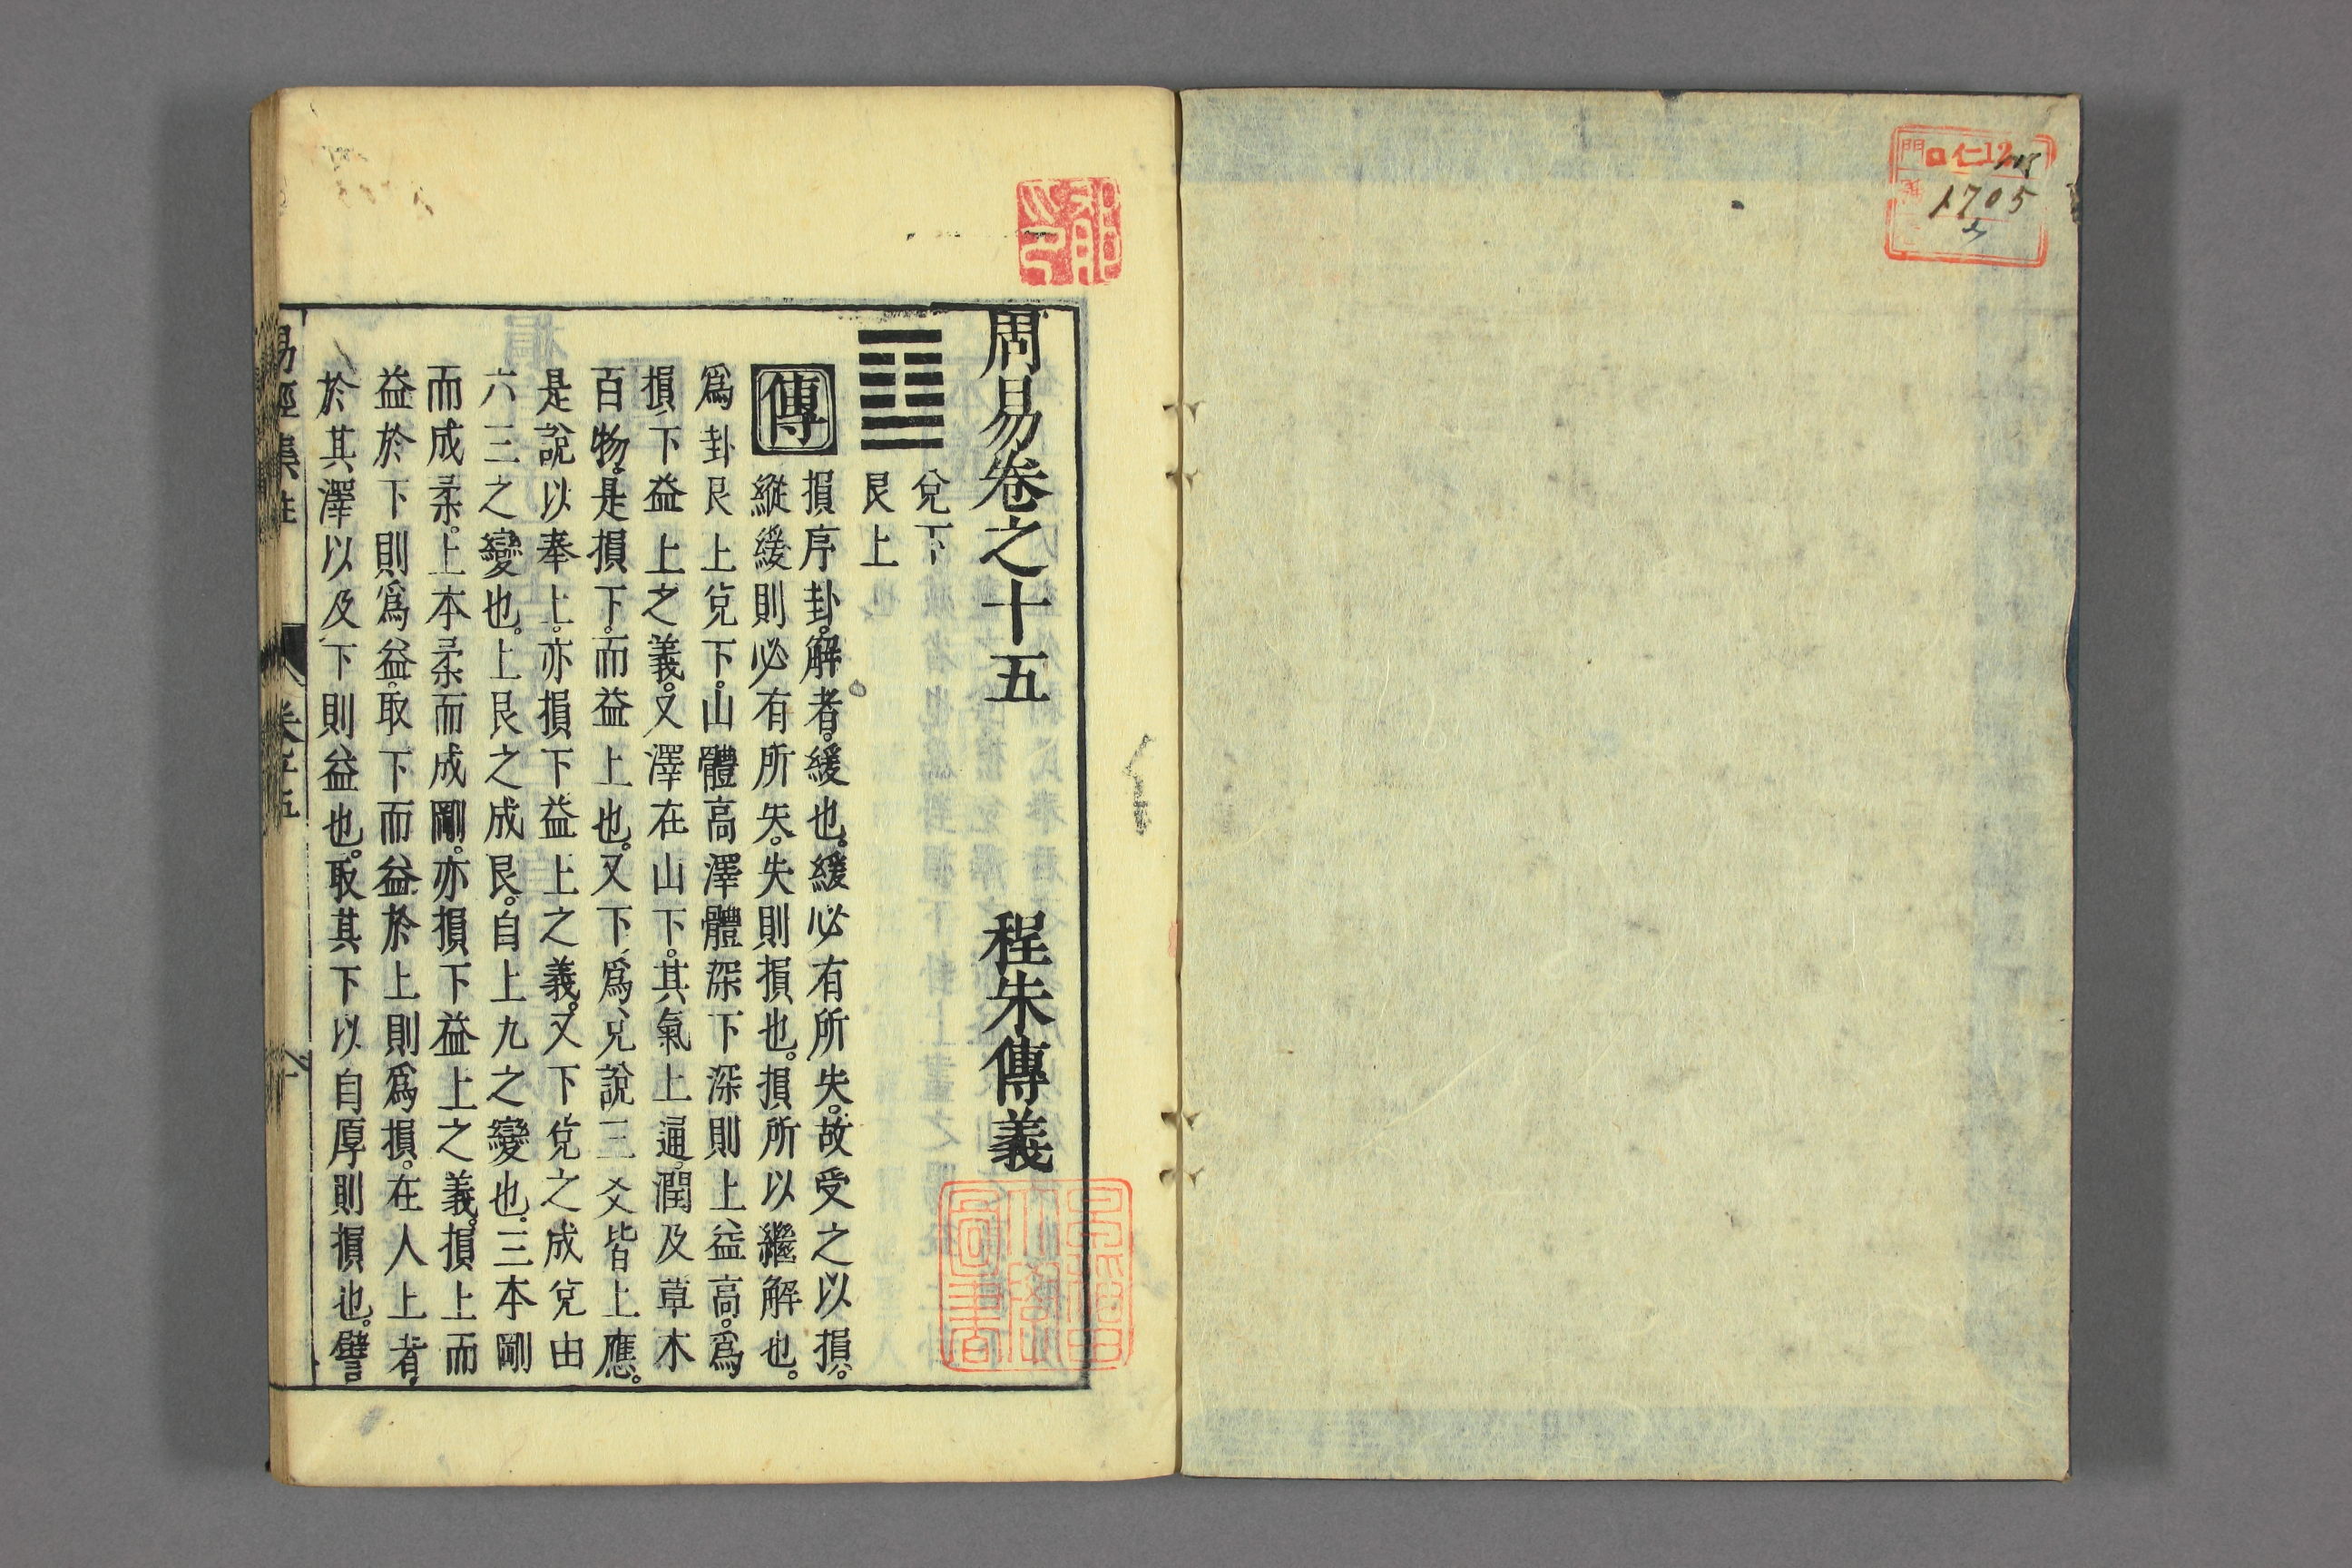 口仁12
1705
周易卷之十五 程朱傳義
兌下
艮上
傳
損序卦。解者。緩也。緩必有所失。故受之以損。
縱緩則必有所失。失則損也。損所以繼解也。
爲卦艮上兌下。山體高澤體深下深則上益高。爲
損下益上之義。又澤在山下。其氣上通。潤及草木
百物。是損下。而益上也。又下爲兌說三爻皆上應。
是說以奉上。亦損下益上之義。又下兌之成兌由
六三之變也。上艮之成艮。自上九之變也。三本剛
而成柔。上本柔而成剛。亦損下益上之義。損上而
益於下則爲益。取下而益於上則爲損。在人上者、
於其澤以及下則益也。取其下以自厚則損也。譬
易經集註 卷十五 一